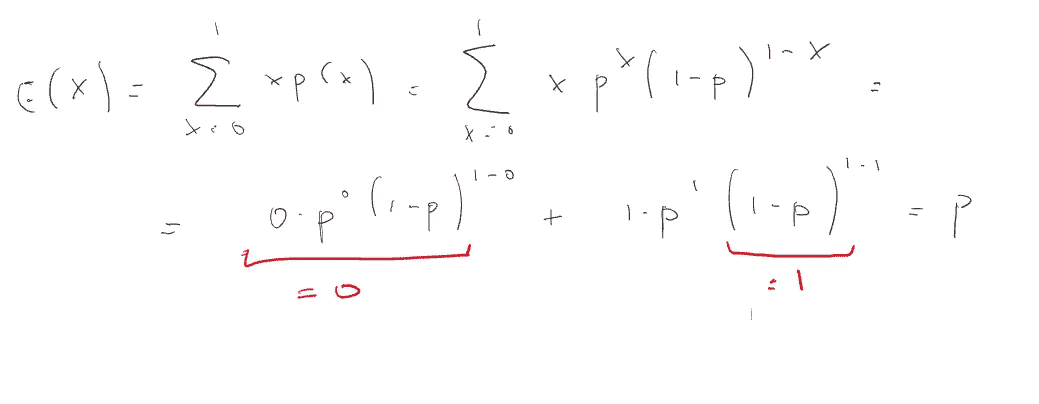 E(X) = \sum_{x=0}^{1} x p(x) = \sum_{x=0}^{1} x p^{x} (1-p)^{1-x} =
= 0 \cdot p^{0} (1-p)^{1-0} + 1 \cdot p^{1} (1-p)^{1-1} = p
= 0 = 1